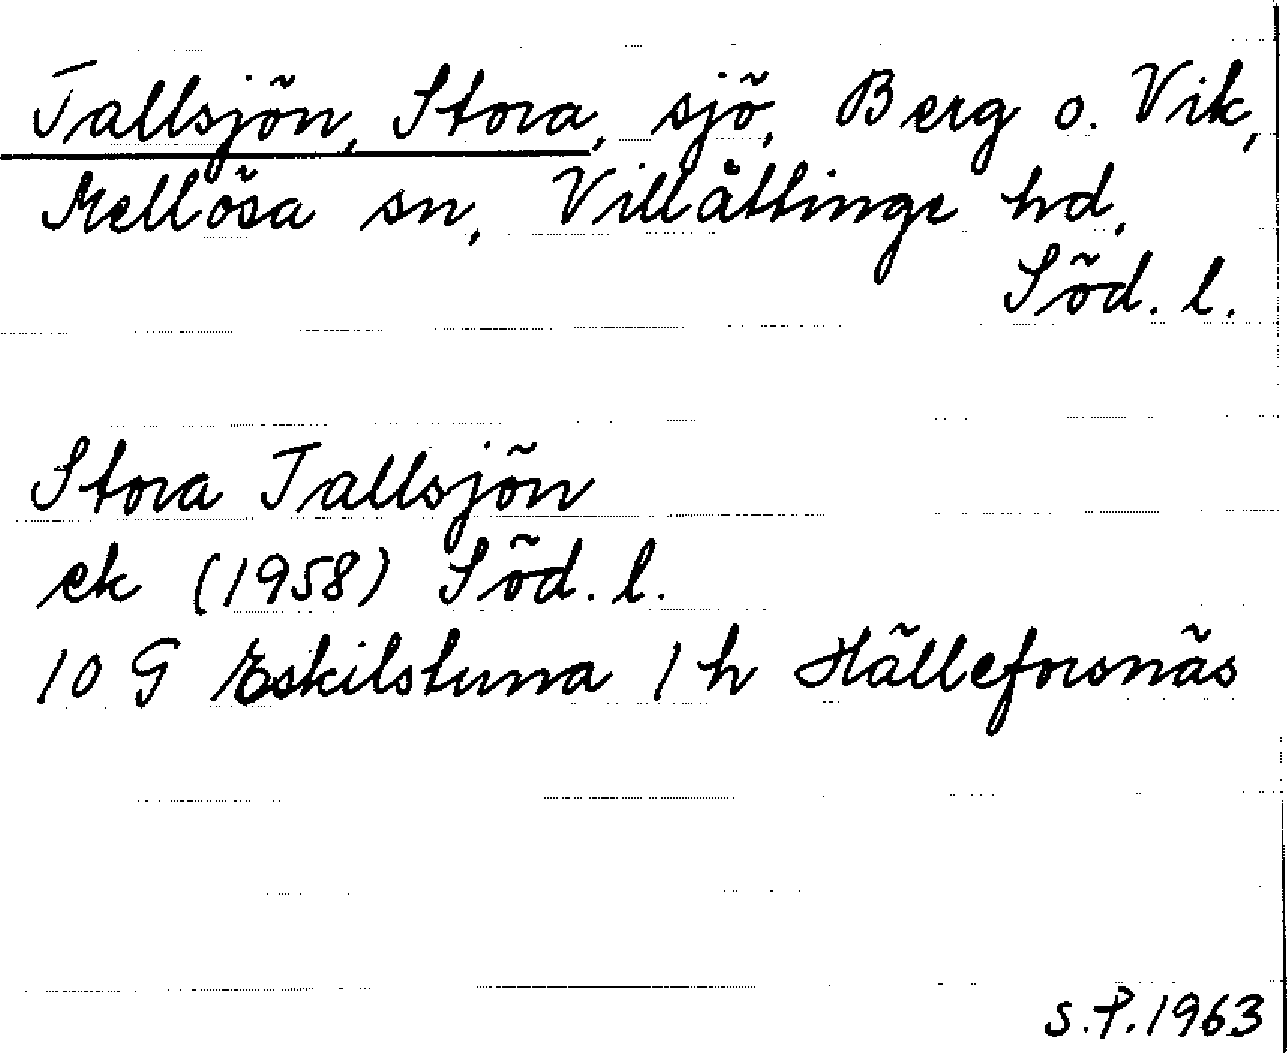 Tallsjön, Stora, sjö, Berg o. Vik,
Mellösa sn, Villåttinge hd,
Söd. l.
Stora Tallsjön
ek (1958) Söd. l.
10 G Eskilstuna 1 h Hälleforsnäs
S.P. 1963